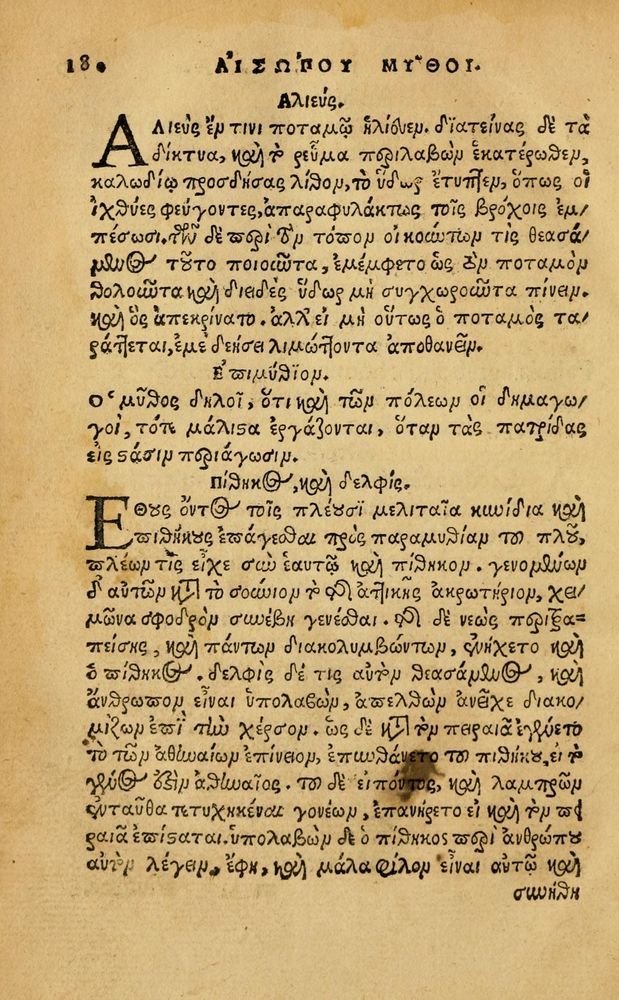 18. ΑἸΣΩΠΟΥ ΜΥ͂ΘΟΙ.
Αλιεύς.
ΑΛιεὺς ἔν τινι ποταμῷ ἡλίευεν. διατείνας δὲ τὰ
δίκτυα, καὶ τὸ ῥεῦμα περιλαβὼν ἑκατέρωθεν,
καλωδίῳ προσδήσας λίθον, τὸ ὕδωρ ἔτυπτεν, ὅπως οἱ
ἰχθύες φεύγοντες, ἀπαραφυλάκτως τοῖς βρόχοις ἐμ/
πέσωσι. τῶν δὲ περὶ τὸν τόπον οἰκούντων τὶς θεασά/
μενος τοῦτο ποιοῦντα, ἐμέμφετο ὡς τὸν ποταμὸν
θολοῦντα καὶ διειδὲς ὕδωρ μὴ συγχωροῦντα πίνειν.
καὶ ὃς ἀπεκρίνατο. ἀλλ' εἰ μὴ οὕτως ὁ ποταμὸς τα/
ράττεται, ἐμὲ δεήσει λιμώττοντα ἀποθανεῖν.
Ἐπιμύθιον.
Ὁ μῦθος δηλοῖ, ὅτι καὶ τῶν πόλεων οἱ δημαγω/
γοὶ, τότε μάλιστα ἐργάζονται, ὅταν τὰς πατρίδας
εἰς στάσιν περιάγωσιν.
Πίθηκος, καὶ δελφίς.
ΕΘους ὄντος τοῖς πλέουσι μελιταῖα κυνίδια καὶ
πιθήκους ἐπάγεσθαι πρὸς παραμυθίαν τοῦ πλοῦ,
πλέων τὶς εἶχε σὺν ἑαυτῷ καὶ πίθηκον. γενομένων
δ' αὐτῶν κατὰ τὸ σούνιον τὸ τῆς ἀττικῆς ἀκρωτήριον, χει/
μῶνα σφοδρὸν συνέβη γενέσθαι. τῆς δὲ νεὼς περιτρα=
πείσης, καὶ πάντων διακολυμβώντων, ἐνήχετο καὶ
ὁ πίθηκος. δελφὶς δέ τις αὐτὸν θεασάμενος, καὶ
ἄνθρωπον εἶναι ὑπολαβὼν, ἀπελθὼν ἀνεῖχε διακο/
μίζων ἐπὶ τὴν χέρσον. ὡς δὲ κατὰ τὸν πειραιᾶ ἐγένετο
τὸ τῶν ἀθηναίων ἐπίνειον, ἐπυνθάνετο τοῦ πιθήκου, εἰ τὸ
γένος ἐστὶν ἀθηναῖος. τοῦ δὲ εἰπόντος, καὶ λαμπρῶν
ἐνταῦθα τετυχηκέναι γονέων, ἐπανήρετο εἰ καὶ τὸν πει
ραιᾶ ἐπίσταται. ὑπολαβὼν δὲ ὁ πίθηκος περὶ ἀνθρώπου
αὐτὸν λέγειν, ἔφη, καὶ μάλα φίλον εἶναι αὐτῷ καὶ
συνήθη